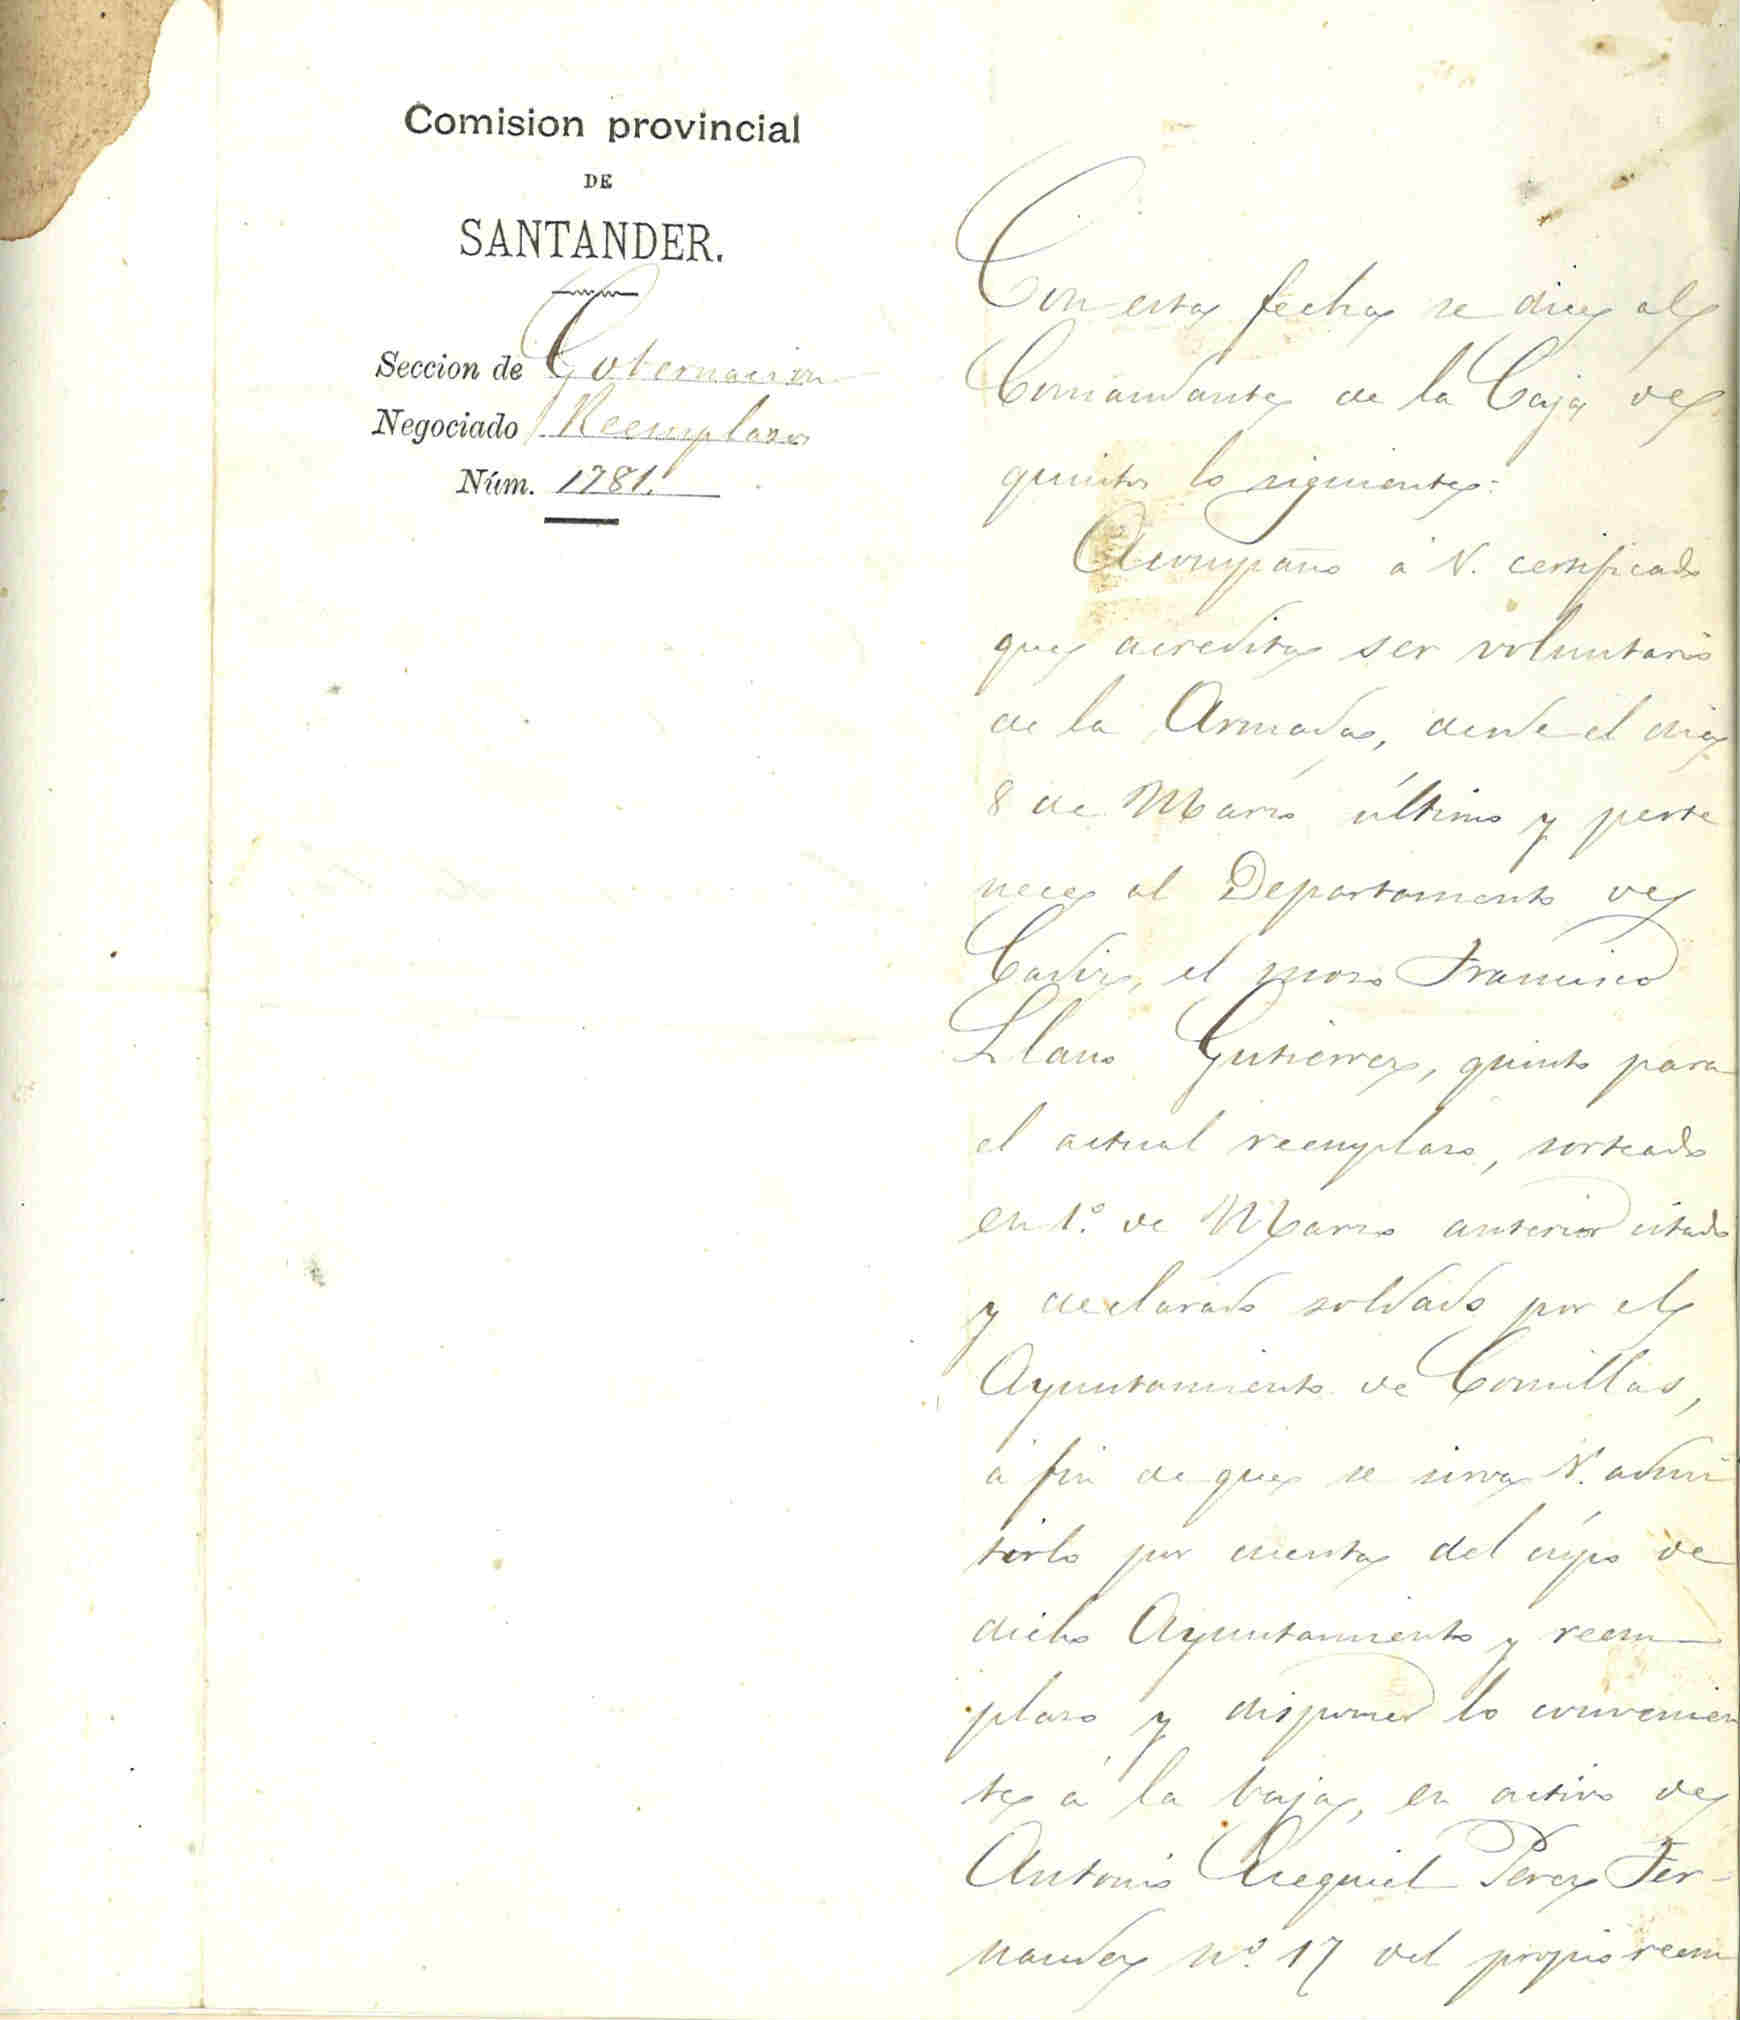 Comision provincial
DE
SANTANDER.
Seccion de Gobernacion
Negociado Reemplazos
Núm. 1781.
Con esta fecha se dice al
Comandante de la Caja de
quintos lo siguiente:
Acompaño á V. certificado
que acredita ser voluntario
de la Armada, desde el dia
8 de Marzo último y perte
nece al Departamento de
Cadiz, el mozo Francisco
Llano Gutierrez, quinto para
el actual reemplazo, sorteado
en 1.º de Marzo anterior citado
y declarado soldado por el
Ayuntamiento de Comillas,
á fin de que se sirva V. admi
tirlo por cuenta del cúpo de
dicho Ayuntamiento y reem
plazo y disponer lo convenien
te á la baja, en activo de
Antonio Ecequiel Perez Fer-
nandez nº. 17 del propio reem